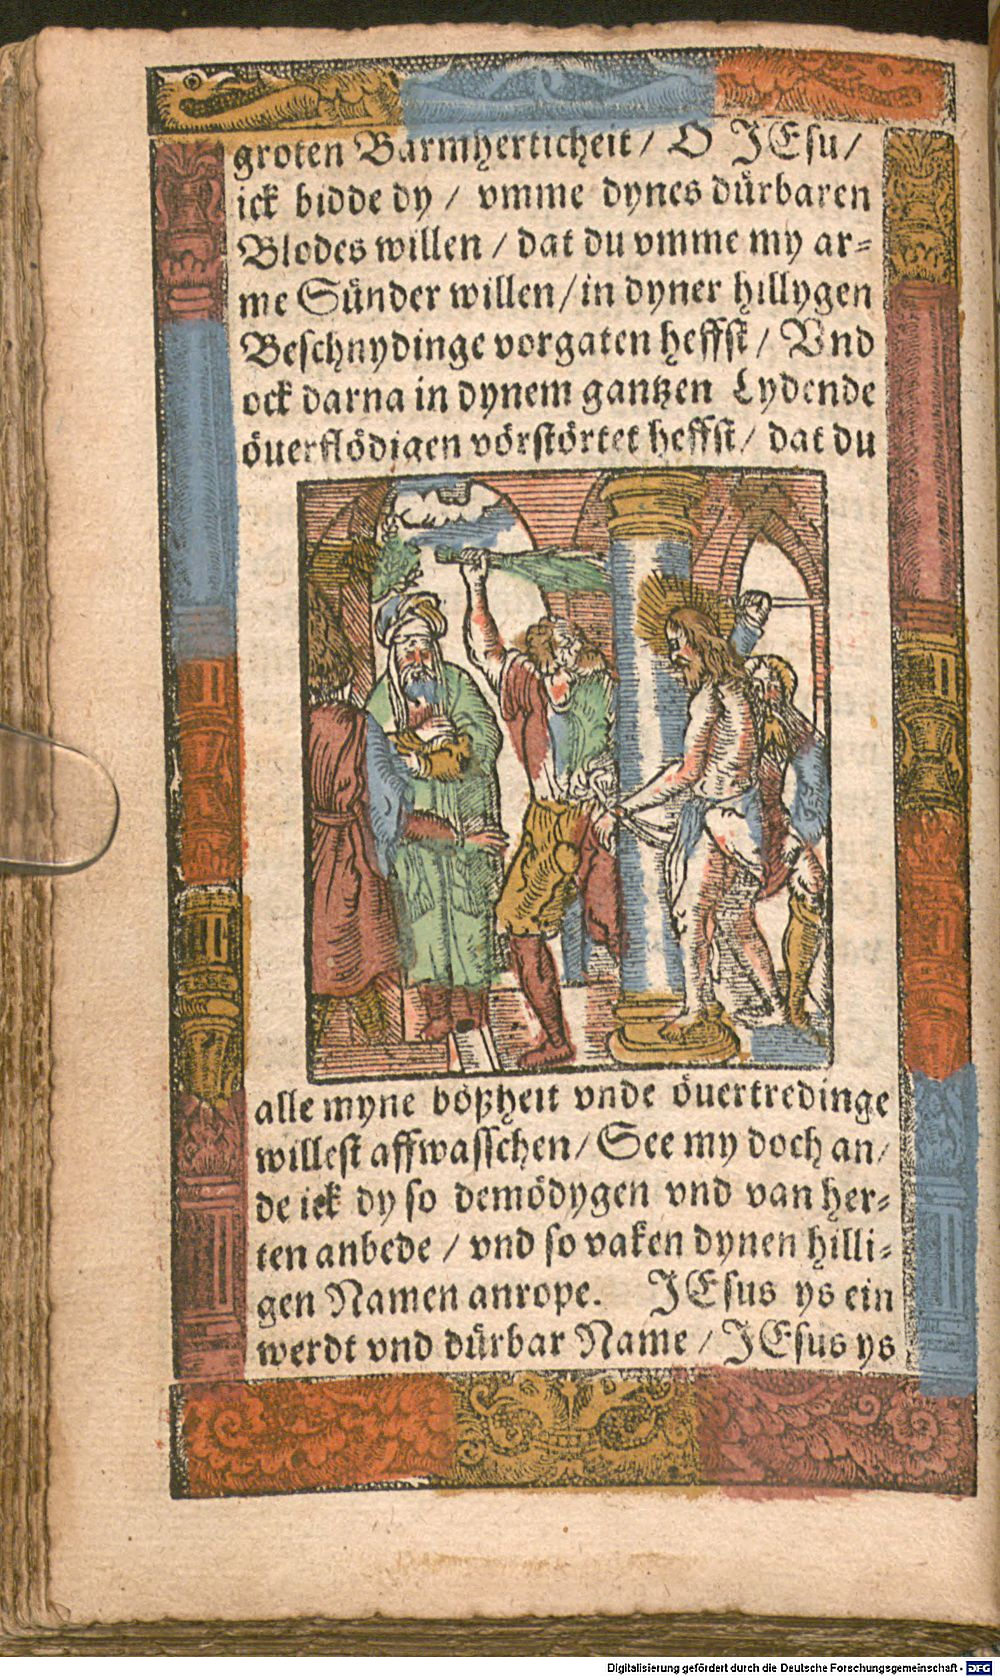 groten Barmherticheit / O JEsu /
ick bidde dy / vmme dynes dürbaren
Blodes willen / dat du vmme my ar=
me Sünder willen / in dyner hillygen
Beschnydinge vorgaten heffst / Vnd
ock darna in dynem gantzen Lydende
öuerflödigen vörstörtet heffst / dat du
alle myne bößheit vnde öuertredinge
willest affwasschen / See my doch an /
de ick dy so demödygen vnd van her=
ten anbede / vnd so vaken dynen hilli=
gen Namen anrope. JEsus ys ein
werdt vnd dürbar Name / JEsus ys
Digitalisierung gefördert durch die Deutsche Forschungsgemeinschaft - DFG